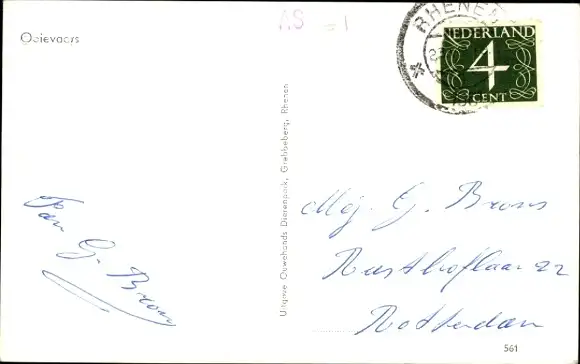 Ooievaars
A8 =1
RHENEN
NEDERLAND
4
CENT
Uitgave Ouwehands Dierenpark, Grebbeberg, Rhenen
Mej. G. Brons
Rusthoflaan 22
Rotterdam
Fam G. Brons
561